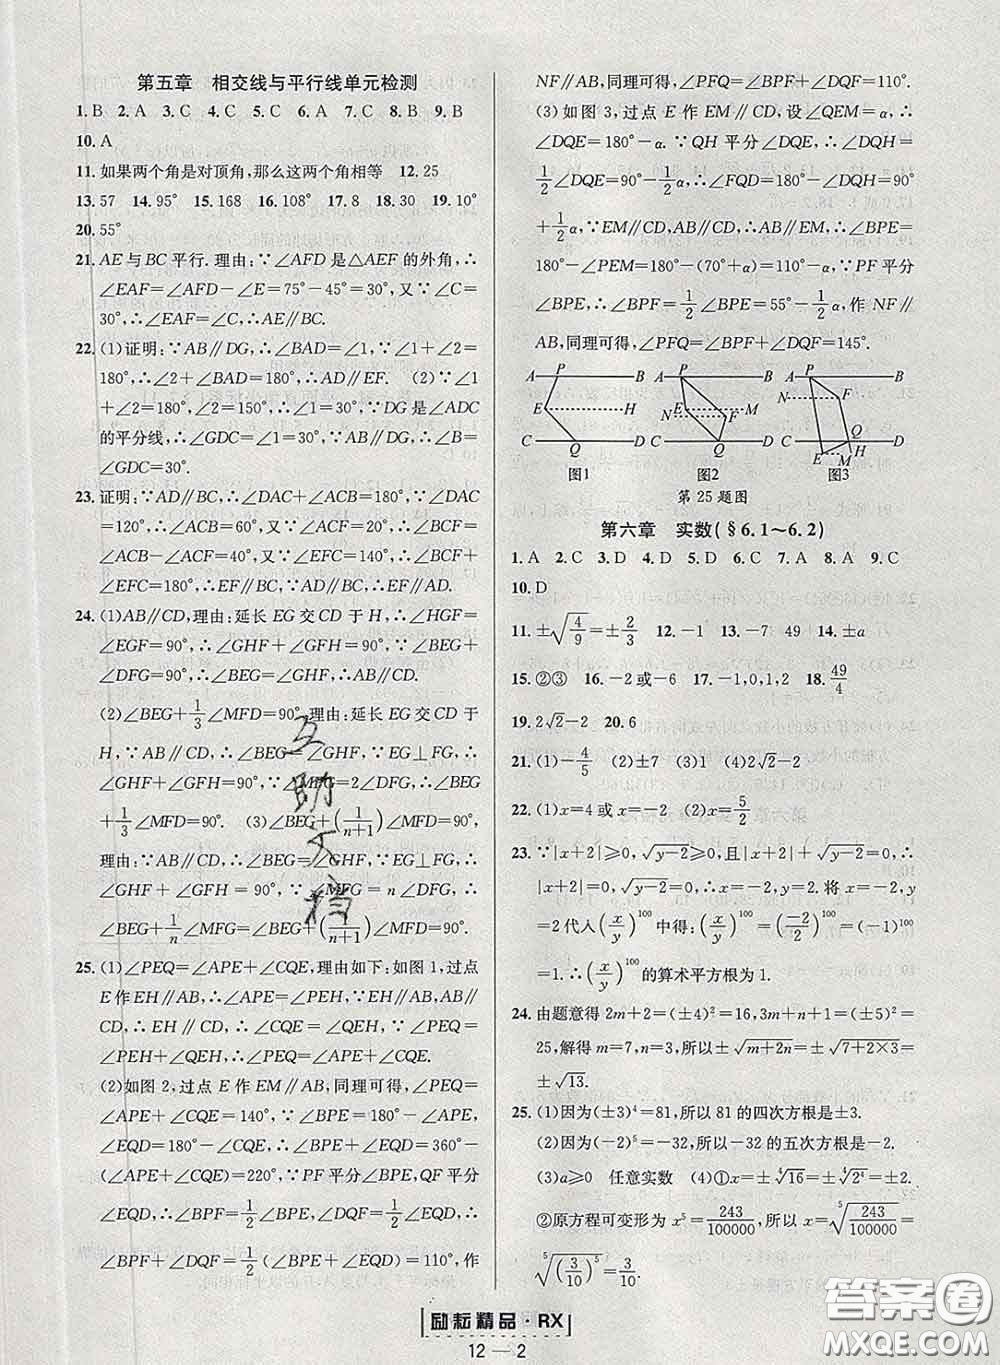 第五章 相交线与平行线单元检测
1. B 2. A 3. C 4. C 5. C 6. A 7. C 8. B 9. B
10. A
11. 如果两个角是对顶角,那么这两个角相等 12. 25
13. 57 14. 95° 15. 168 16. 108° 17. 8 18. 30 19. 10°
20. 55°
21. AE与BC平行.理由:∵∠AFD是△AEF的外角,∴
∠EAF=∠AFD-∠E=75°-45°=30°,又∵∠C=
30°,∴∠EAF=∠C,∴AE∥BC.
22. (1)证明:∵AB∥DG,∴∠BAD=∠1,∵∠1+∠2=
180°,∴∠2+∠BAD=180°,∴AD∥EF. (2)∵∠1
+∠2=180°,∠2=150°,∴∠1=30°,∵DG是∠ADC
的平分线,∴∠GDC=∠1=30°,∵AB∥DG,∴∠B=
∠GDC=30°.
23. 证明:∵AD∥BC,∴∠DAC+∠ACB=180°,∵∠DAC
=120°,∴∠ACB=60°,∵∠ACF=20°,∴∠BCF=
∠ACB-∠ACF=40°,又∵∠EFC=140°,∴∠BCF+
∠EFC=180°,∴EF∥BC,∵AD∥BC,∴EF∥AD.
24. (1)AB∥CD,理由:延长EG交CD于H,∴∠HGF=
∠EGF=90°,∴∠GHF+∠GFH=90°,∵∠BEG+
∠DFG=90°,∴∠BEG=∠GHF,∴AB∥CD.
(2)∠BEG+1/3∠MFD=90°,理由:延长EG交CD于
H,∵AB∥CD,∴∠BEG=∠GHF,∵EG⊥FG,∴
∠GHF+∠GFH=90°,∵∠MFG=2∠DFG,∴∠BEG+
1/3∠MFD=90°. (3)∠BEG+(1/(n+1))∠MFD=90°,
理由:∵AB∥CD,∴∠BEG=∠GHF,∵EG⊥FG,∴
∠GHF+∠GFH=90°,∵∠MFG=n∠DFG,∴
∠BEG+1/n∠MFG=∠BEG+(1/(n+1))∠MFD=90°.
25. (1)∠PEQ=∠APE+∠CQE,理由如下:如图1,过点
E作EH∥AB,∴∠APE=∠PEH,∵EH∥AB,AB∥
CD,∴EH∥CD,∴∠CQE=∠QEH,∵∠PEQ=
∠PEH+∠QEH,∴∠PEQ=∠APE+∠CQE.
(2)如图2,过点E作EM∥AB,同理可得,∠PEQ=
∠APE+∠CQE=140°,∵∠BPE=180°-∠APE,
∠EQD=180°-∠CQE,∴∠BPE+∠EQD=360°-
(∠APE+∠CQE)=220°,∵PF平分∠BPE,QF平分
∠EQD,∴∠BPF=1/2∠BPE,∠DQF=1/2∠EQD,∴
∠BPF+∠DQF=1/2(∠BPE+∠EQD)=110°,作
NF∥AB,同理可得,∠PFQ=∠BPF+∠DQF=110°.
(3)如图3,过点E作EM∥CD,设∠QEM=α,∴
∠DQE=180°-α.∵QH平分∠DQE,∴∠DQH=
1/2∠DQE=90°-1/2α,∴∠FQD=180°-∠DQH=90°
+1/2α,∵EM∥CD,AB∥CD,∴AB∥EM,∴∠BPE=
180°-∠PEM=180°-(70°+α)=110°-α,∵PF平分
∠BPE,∴∠BPF=1/2∠BPE=55°-1/2α,作NF∥
AB,同理可得,∠PFQ=∠BPF+∠DQF=145°.
A P B A P B A P B
E H E M N F N F
C Q D C Q D C Q D
E M H
图1 图2 图3
第25题图
第六章 实数(§6.1~6.2)
1. A 2. C 3. D 4. D 5. D 6. C 7. A 8. A 9. C
10. D
11. ±√(4/9)=±2/3 12. -1 13. -7 49 14. ±a
15. ②③ 16. -2或-6 17. -1,0,1,2 18. 49/4
19. 2√2-2 20. 6
21. (1)-4/5 (2)±7 (3)1 (4)2√2-2
22. (1)x=4或x=-2 (2)x=5/2
23. ∵|x+2|≥0,√(y-2)≥0,且|x+2|+√(y-2)=0,∴
|x+2|=0,√(y-2)=0,∴x=-2,y=2.将x=-2,y
=2代人(x/y)^100中得:(x/y)^100=(-2/2)^100=(-1)^100
=1.∴(x/y)^100的算术平方根为1.
24. 由题意得2m+2=(±4)²=16,3m+n+1=(±5)²=
25,解得m=7,n=3,所以±√(m+2n)=±√(7+2×3)=
±√13.
25. (1)因为(±3)⁴=81,所以81的四次方根是±3.
(2)因为(-2)⁵=-32,所以-32的五次方根是-2.
(3)a≥0 任意实数 (4)①x=±⁴√16=±⁴√2⁴=±2.
②原方程可变形为x⁵=243/100000,x=⁵√(243/100000)=
⁵√((3/10)⁵)=3/10.
互助文档
励耘精品·RX
12—2
答案圈
MXQE.COM